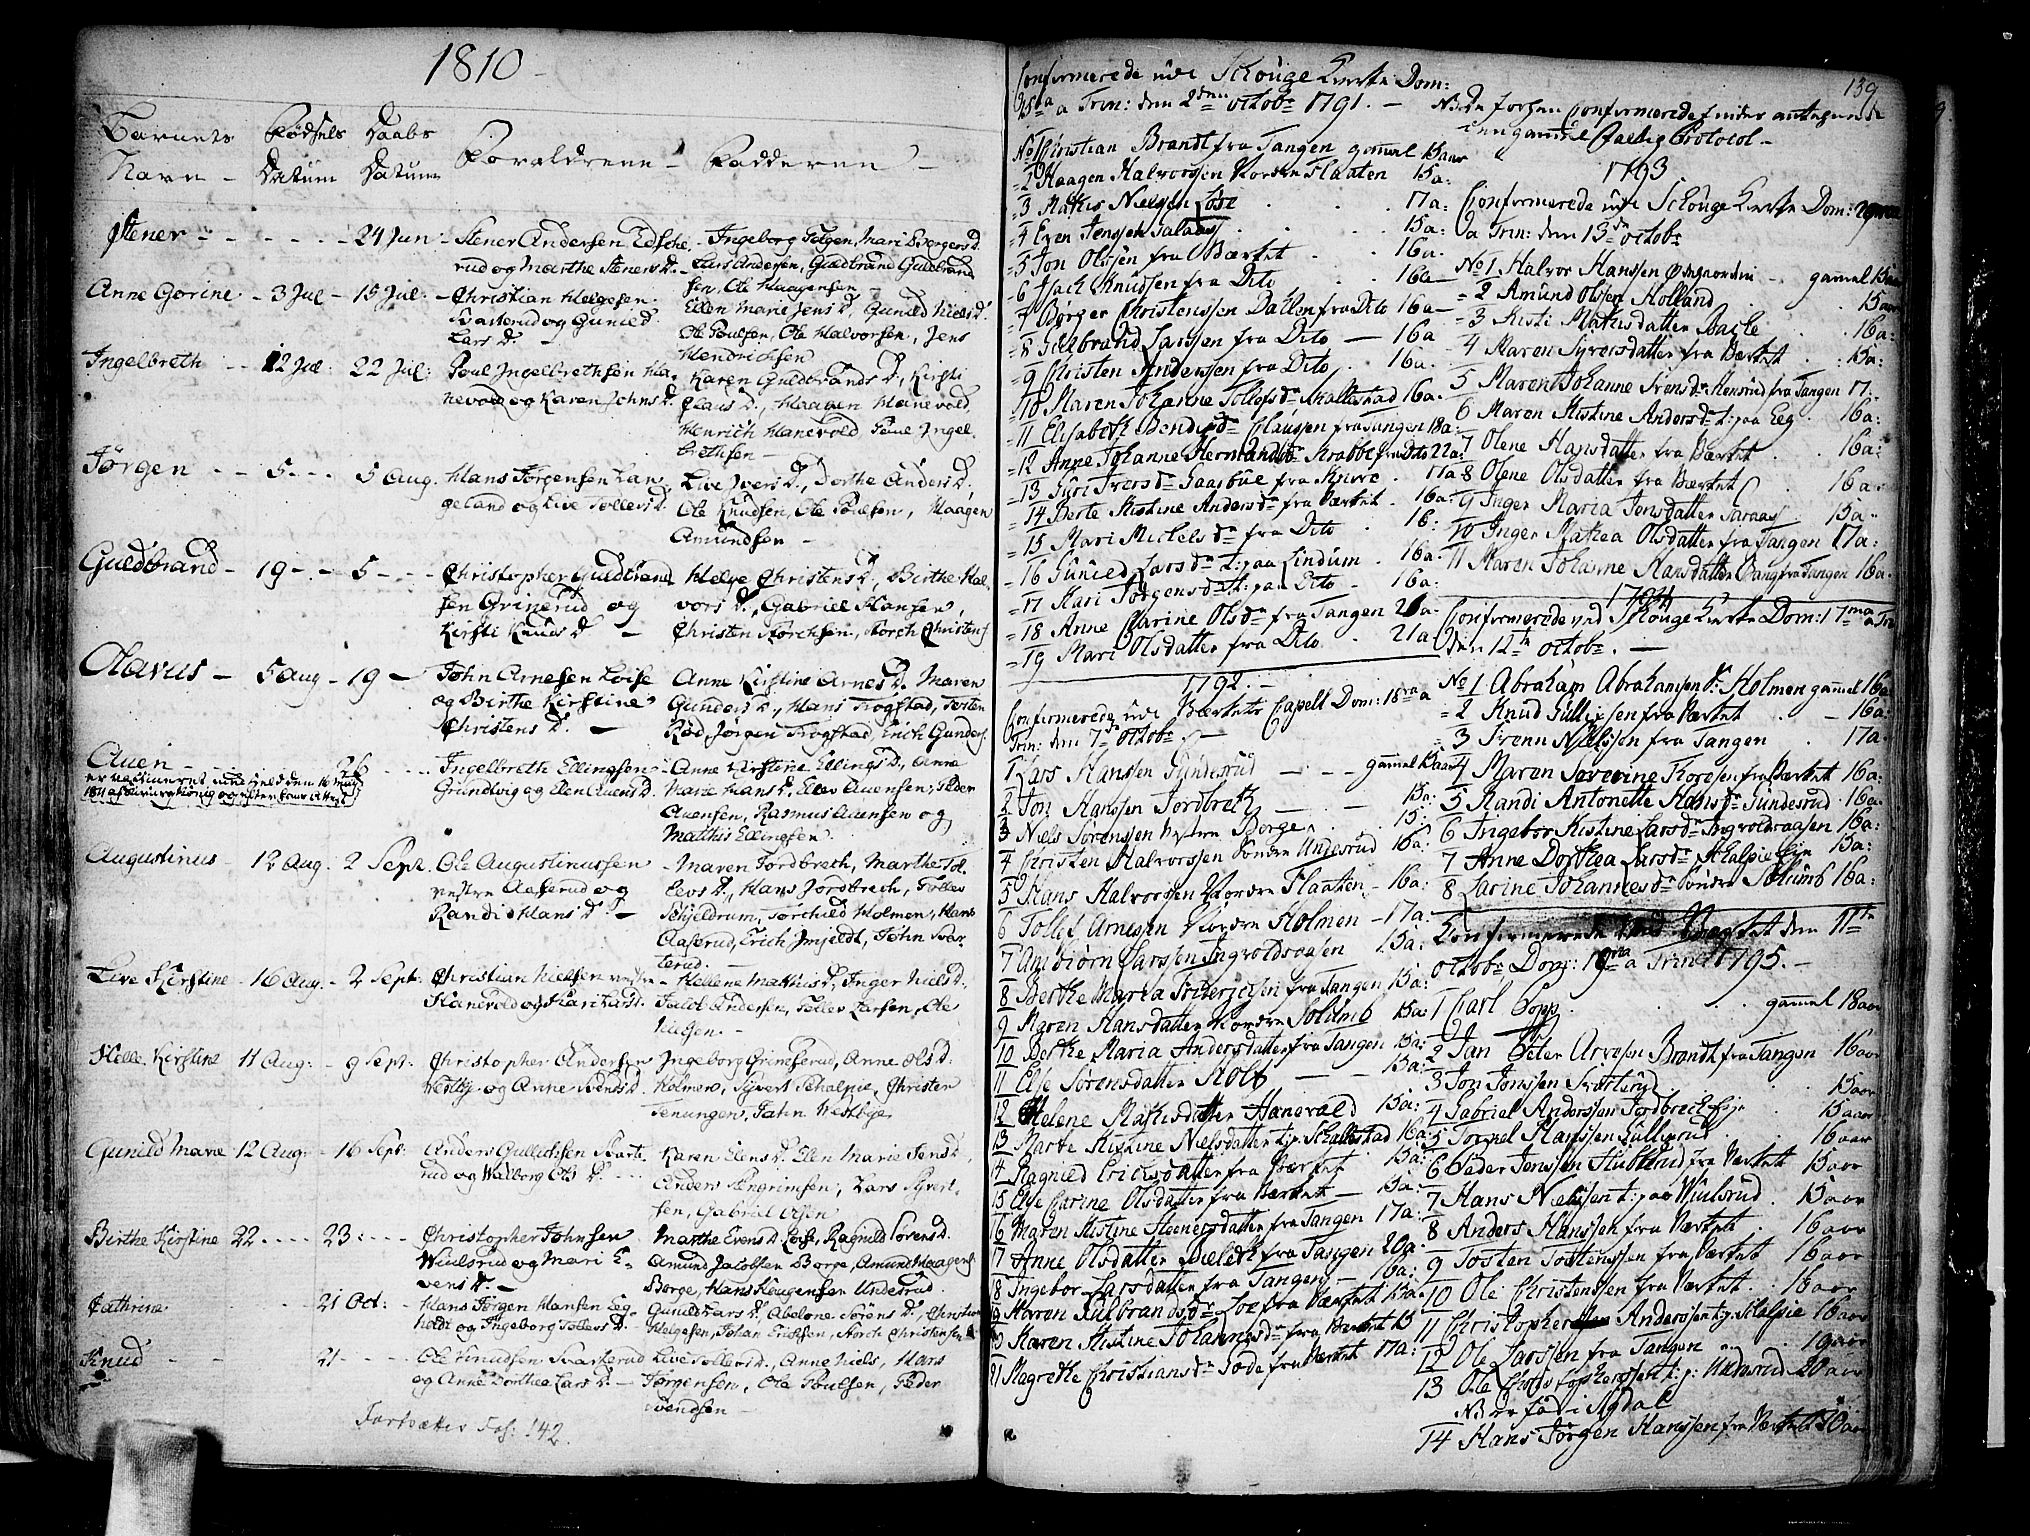 1810
Barnets Navn
Fødsels Datum
Daabs Datum
Forældrene
Fadderne
Stener - - - 24 Jun
Stener Andersen Edsche
rud og Marthe Steners D.
Ingeborg Tolgen, Mari Børgers D.
Lars Andersen, Guldbrand Guldbrand
sen, Ole Haagensen
Anne Gorine - 3 Jul - 15 Jul:
Christian Helgesen
Svarterud og Gunild
Lars D.
Ellen Marie Jens D., Gunild Niels D.
Ole Poulsen, Ole Halvorsen, Jens
Hendrichsen
Ingelbreth - 12 Jul 22 Jul:
Poul Ingelbrethsen Ha-
nevold og Karen Johns D.
Karen Guldbrands D., Kirsti
Claus D., Haagen Hanevold,
Henrich Hanevold, Poul Ingel
brethsen
Jørgen - - 5 - - 5 Aug.
Hans Jørgensen Lan
geland og Live Tollevs D.
Live Ivers D., Dorthe Anders D.
Ole Knudsen, Ole Poulsen, Haagen
Amundsen
Guldbrand - 19 - - 5 - -
Christopher Guldbrand
sen Grinerud og
Kirsti Knuds D.
Helge Christens D., Birthe Hal
vors D., Gabriel Hansen,
Christen Storchsen, Storch Christens
Olavus - 5 Aug - 19 -
John Arnesen Loise
og Birthe Kirstine
Christens D.
Anne Kirstine Arnes D. Maren
Gunders D., Hans Trogstad, Torsten
Rød, Jørgen Trogstad, Erich Gunders
Auen - - - 26 - -
Ingelbreth Ellingsen
Grundvig og Elen Auens D.
Anne Kirstine Ellings D., Anne
Marie Hans D., Ellev Auensen, Peder
Auensen, Rasmus Auensen og
Matthis Ellingsen
Augustinus - 12 Aug. 2 Sept.
Ole Augustinussen
vestre Aaserud og
Randi Hans D.
Maren Jordbreth, Marthe Tol
levs D., Hans Jordbrech, Tollev
Schjeldrum, Torchild Holmen, Hans
Aaserud, Erich Imjeldt, John Svar
terud.
Live Kirstine - 16 Aug. - 2 Sept.
Christian Nielsen vestre
Hanevold og Kari Lars D.
Hellene Mathis D., Inger Niels D.,
Jacob Andersen, Tollev Larsen, Ole
Helle Kirstine 11 Aug: - 9 Sept:
Christopher Andersen
Vestby og Anne Svens D.
Ingeborg Grinserud, Anne Ols D:
Holmero, Syvert Schalpie, Christen
Tenungen, John Westbye
Gunild Marie 12 Aug: - 16 Sept:
Anders Gullichsen Svarte
rud og Walborg Ols D.
Karen Elens D. Elen Marie Jens D.,
Anders Asgrimsen, Lars Syvert-
sen, Gabriel Olsen
Birthe Kirstine 22 - - 23: - -
Christopher Johnsen
Wiulsrud og Mari E-
vens D
Marthe Evens D. Loise, Ragnild Sørens D.
Amund Jacobsen Borge, Amund Haagens
Borge, Hans Haugensen Undesrud.
Cathrine - - 21 Oct:
Hans Jørgen Hansen Leg
holdt og Ingeborg Tollevs D.
Gunild Lars D., Abelone Sørens D., Christen
Helgesen, Johan Erichsen, Storch Christensen
Knud - - 21 - - -
Ole Knudsen Svarterud
og Anne Dorthea Lars D.
Live Tollevs D., Anne Niels, Hans
Jørgensen, Ole Poulsen, Peder
Svendsen
Fortsættes Fol: 142.
139
Confirmerede udi Schouge Kircke Dom:
15da a Trin: den 2den octobr 1791.
No 1 Christian Brandt fra Tangen gammel 15 aar
2 Haagen Halvorssen Nordre Flaaten 15a:
3 Mathis Nielsen Lose 17a:
4 Even Jenssen Salaas 15a:
5 Jon Olssen fra Værket 16a.
6 Isach Knudssen fra Dito 16a
7 Børger Christenssen Dallen fra Dito 16a
8 Gulbrand Larssen fra Dito 16a
9 Christen Anderssen fra Dito 16a.
10 Maren Johanne Tollofsdr Skallestad 16a.
11 Elisabeth Bendixdr Claussen fra Tangen 18a:
12 Anne Johanne Hermandsdr Krabbe fra Dito 22a:
13 Guri Iversdr Gaasbue fra Knivre 17a
14 Berte Kistine Andersdr fra Værket 16a:
15 Mari Mickelsdr fra Dito 16:
16 Gunild Larsdr t: paa Lindum 16a.
17 Kari Jørgensdr t: paa Dito 16a:
18 Anne Carine Olsdr fra Tangen 20a:
19 Mari Olsdatter fra Dito 21a:
1792.
Confirmerede udi Værkets Capell Dom: 18va a
Trin: den 7de octobr.
1 Lars Hanssen Gundesrud gammel 15aar
2 Jon Hanssen Jordbreth 15a:
3 Niels Sørenssen vestre Borge 15:
4 Christen Halvorssen Søndre Undesrud 16a:
5 Hans Halvorssen Nordre Flaatten 16a:
6 Tollef Arnessen Nordre Holmen 17a:
7 Anbiørn Larssen Ingvoldsaasen 15a:
8 Berthe Maria Friderichsen fra Tangen 15a:
9 Maren Hansdatter Nordre Solumb 15a
10 Berthe Maria Andersdatter fra Tangen 15a:
11 Else Sørensdatter Holt 15a:
12 Helene Mathisdatter Hanevald 15a:
13 Marte Kistine Nielsdatter t.p. Schallestad 16a:
14 Ragnild Ericksdatter fra Værket 15a:
15 Else Carine Olsdatter fra Værket 15a:
16 Maren Kistine Steenersdatter fra Tangen 17a:
17 Anne Olsdatter Meldth fra Tangen 20a.
18 Ingebor Larsdatter fra Tangen 16a:
19 Maren Gulbrandsdr Loe fra Værket 15a:
20 Karen Kistine Johannesdr fra Værket 15
21 Magrethe Christiansdr Gode fra Værket 17a:
NB de forhen Confirmerede findes antegnede
i en gammel Pælig Protocol
1793
Confirmerede udi Schouge Kircke Dom: 20
a Trin: den 13de octobr
No 1 Halvor Hanssen gammel 15aar
2 Amund Olssen Holland 15aar
3 Kisti Mathisdatter Basle 16a:
4 Maren Syversdatter fra Værket 15a:
5 Maren Johanne Svensdr Hensrud fra Tangen 17:
6 Maren Kistine Andersdr t: paa Eeg 16a:
7 Olene Hansdatter fra Værket 16a:
8 Olene Olsdatter fra Værket 16a:
9 Inger Maria Jensdatter Saraas 15a
10 Inger Mathea Olsdatter fra Tangen 17a:
11 Maren Johanne Hansdatter Bang fra Tangen 16a.
1794
Confirmerede ved Schouge Kircke Dom: 17ma a Tri
den 12te octobr.
No 1 Abraham Abrahamsen Sr Holmen gammel 16a
2 Knud Gullixsen fra Værket 16a:
3 Svenn Nielssen fra Tangen 17a
4 Maren Severine Thoresen fra Værket 16a:
5 Randi Antonette Hansdr Gundesrud 16a
6 Ingebor Kistine Larsdr Ingvoldsaasen 16a:
7 Anne Dorthea Larsdr Skalpie Eie 15a:
8 Larine Johannesdr Søndre Solumb 16a:
Confirmerede ved Værket den 11te
octobr Dom: 19na a Trinit 1795.
1 Carl Popp gammel 18aar
2 Jan Peter Arvesen Brandt fra Tangen 16aar
3 Jon Jonssen Svarterud 15aar
4 Gabriel Anderssen Jordbrech Eje 15aar
5 Tormel Hanssen Gullerud 16aar
6 Peder Jenssen Hubberud fra Værket 15aar
7 Hans Nielssen t: paa Wiulsrud 15aar
8 Anders Hanssen fra Værket 16aar
9 Tosten Tostenssen fra Værket 16aar
10 Ole Christenssen fra Værket 16aar
11 Christopher Anderssen t.p. Skalpie 16aar
12 Ole Larssen fra Tangen 19aar
13 Ole Christopherssen t: p: Undesrud 20aar
NB er fød i Agdal
14 Hans Jørgen Hanssen fra Værket